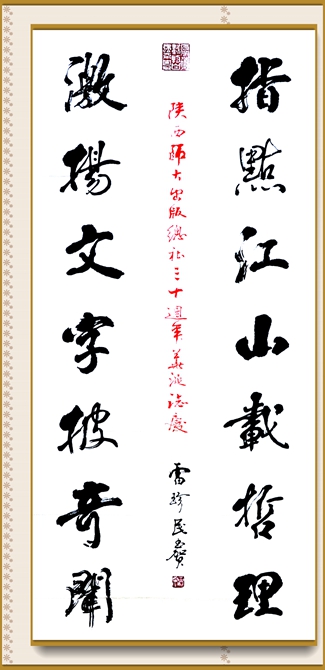 指點江山載哲理
陝西師大出版總社三十週年華誕誌慶
雷珍民書賀
激揚文字披奇聞